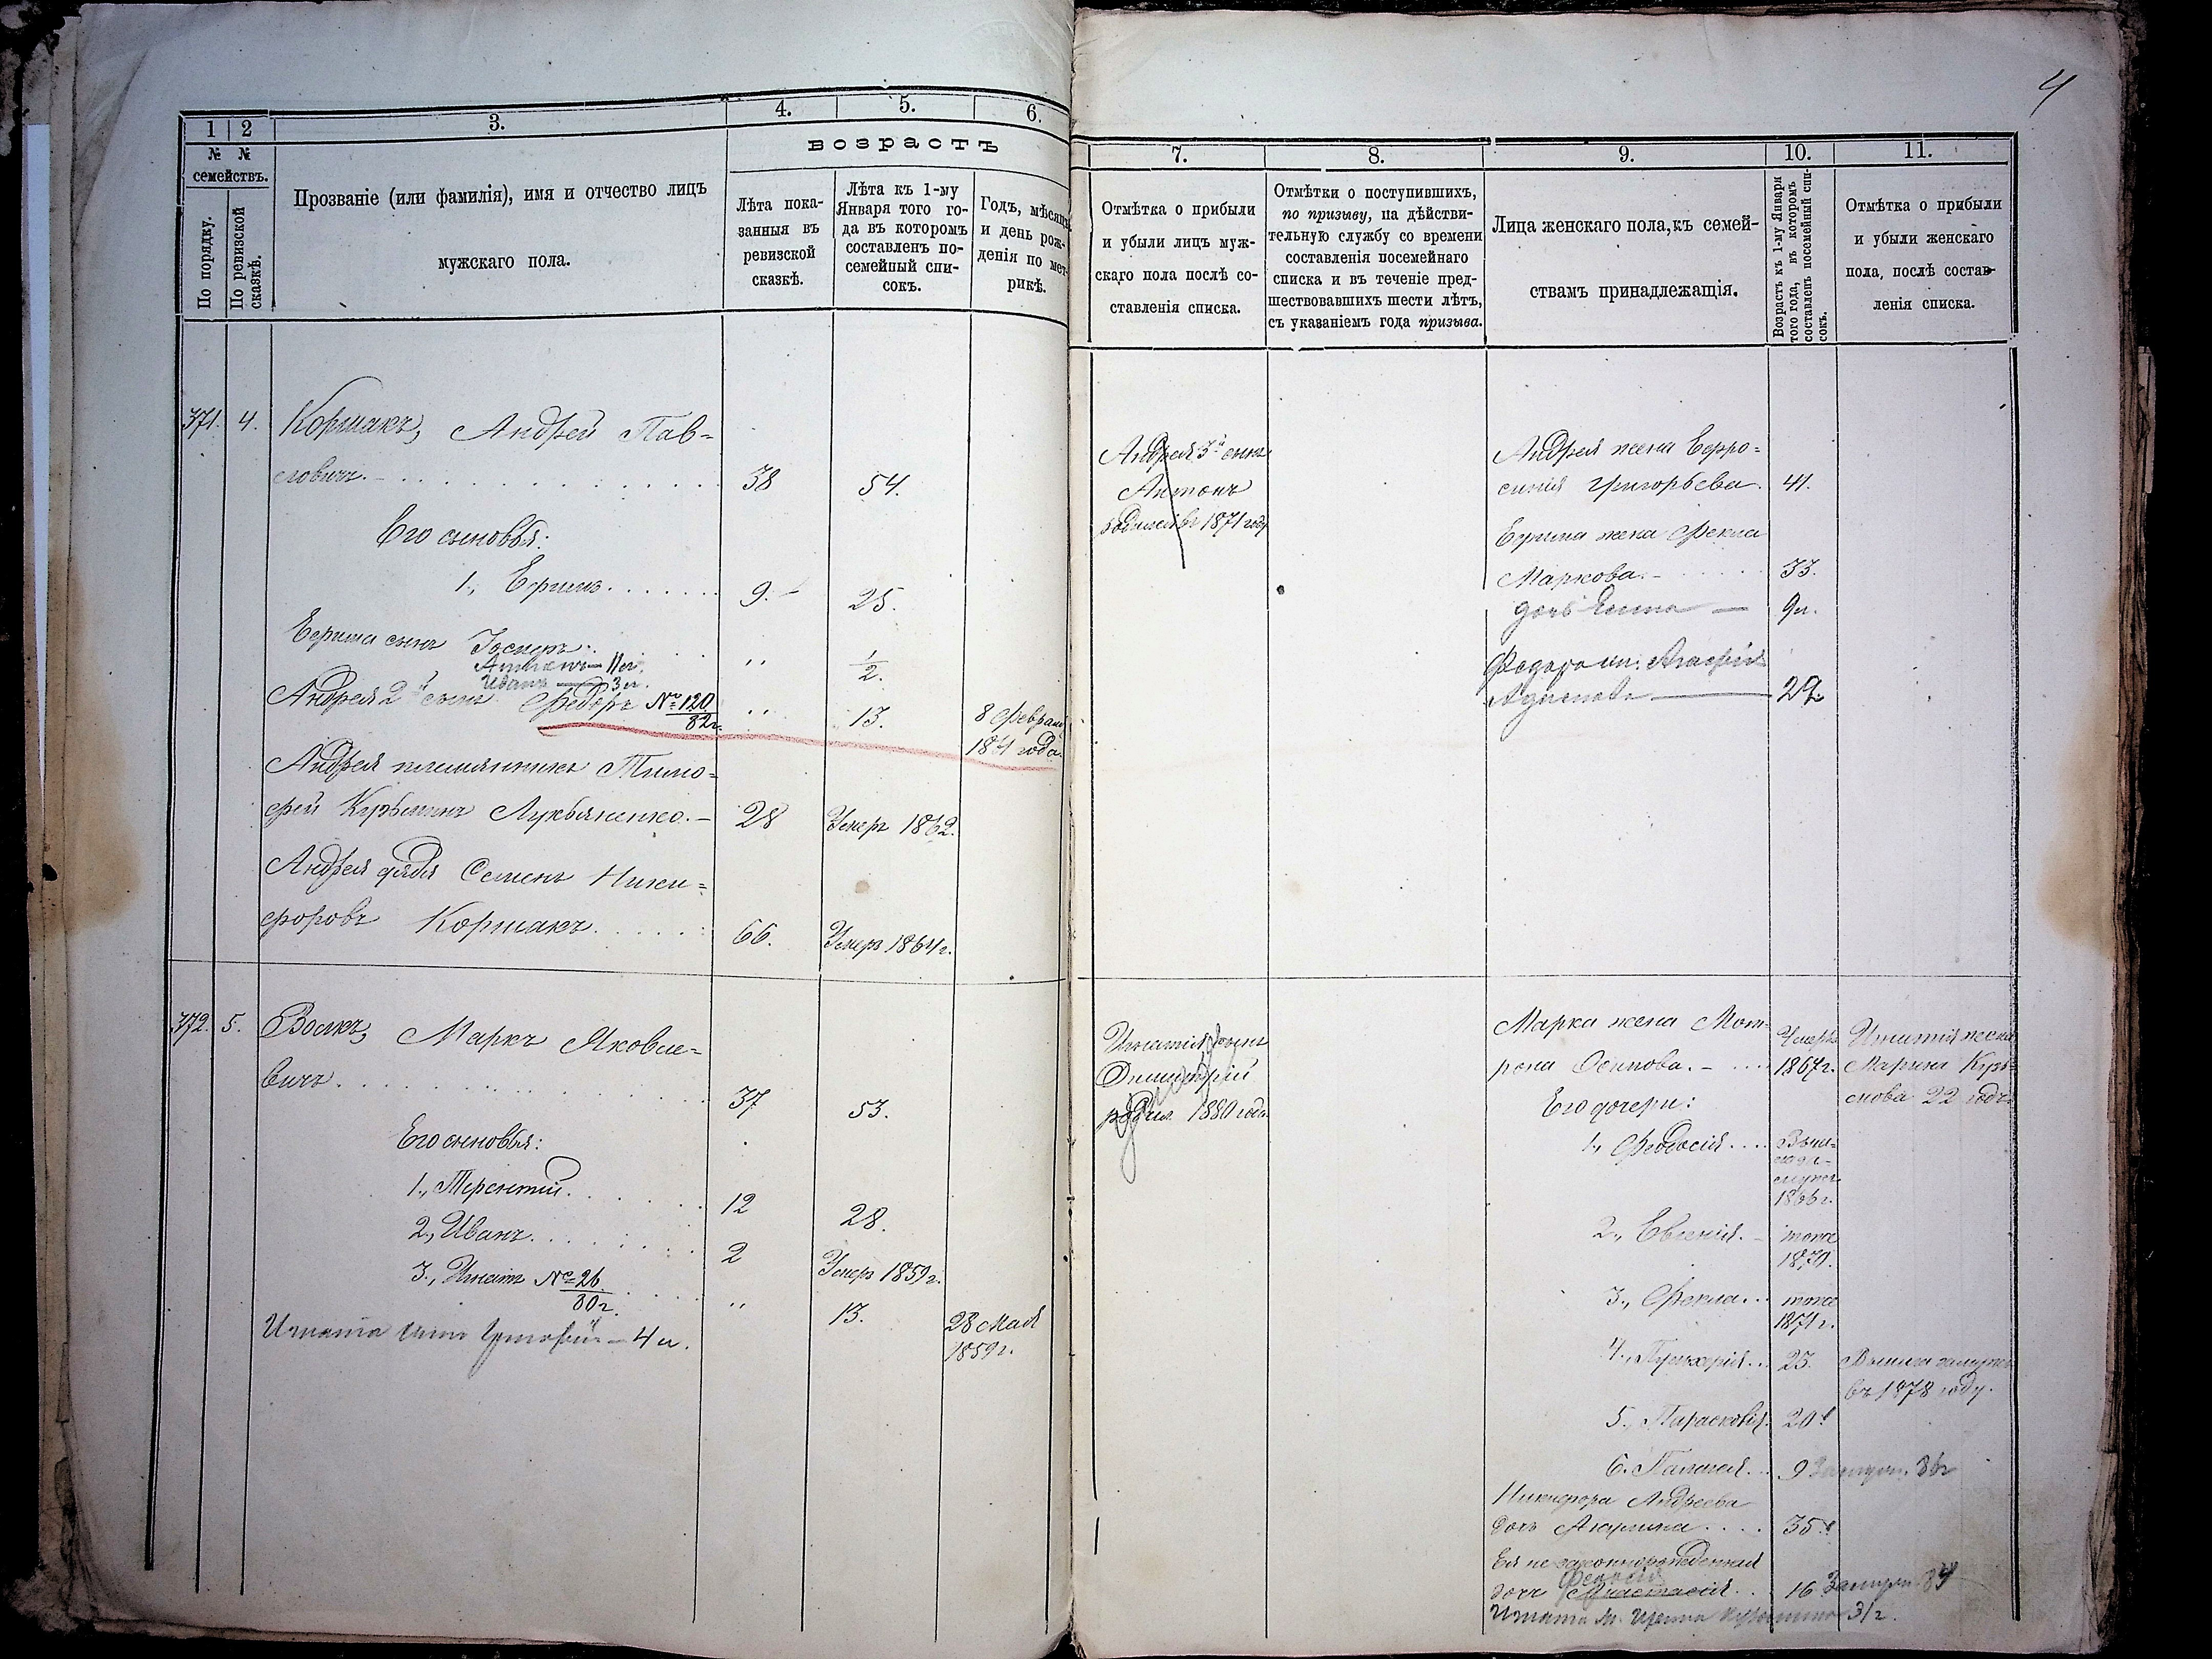 4
1 2 3. 4. 5. 6.
№ № семействъ.
По порядку.
По ревизской сказкѣ.
Прозваніе (или фамилія), имя и отчество лицъ
мужскаго пола.
возрастъ
Лѣта пока-
занныя въ
ревизской
сказкѣ.
Лѣта къ 1-му
Января того го-
да въ которомъ
составленъ по-
семейный спи-
сокъ.
Годъ, мѣсяцъ
и день рож-
денія по мет-
рикѣ.
371. 4. Коршакъ, Андрей Пав-
ловичъ. 38 54.
Его сыновья:
1., Ефимъ. 9. 25.
Ефима сынъ Іосифъ. „ 1/2.
Антонъ — 11 л.
Иванъ — 3 л.
Андрея 2й сынъ Федоръ № 120/82г. „ 13. 8 Февраля
года.
Андрея племянникъ Тимо-
фей Кузьминъ Лукьяненко. 28 Умеръ 1862.
Андрея дядя Семенъ Ники-
форовъ Коршакъ. 66. Умеръ 1864г.
372. 5. Волкъ, Маркъ Яковле-
вичъ. 37 53.
Его сыновья:
1., Терентій. 12 28.
2., Иванъ. 2 Умеръ 1859г.
3., Игнатъ № 26/80г. „ 13. 28 Мая
1859г.
Игната сынъ — 4 л.
7. 8. 9. 10. 11.
Отмѣтка о прибыли
и убыли лицъ муж-
скаго пола послѣ со-
ставленія списка.
Отмѣтки о поступившихъ,
по призыву, на дѣйстви-
тельную службу со времени
составленія посемейнаго
списка и въ теченіе пред-
шествовавшихъ шести лѣтъ,
съ указаніемъ года призыва.
Лица женскаго пола, къ семей-
ствамъ принадлежащія.
Возрастъ къ 1-му Января
того года, въ которомъ
составленъ посемейный спи-
сокъ.
Отмѣтка о прибыли
и убыли женскаго
пола, послѣ состав-
ленія списка.
Андрея 3й сынъ
Антонъ
родился въ 1871 году
Андрея жена Ефро-
синія Григорьева. 41.
Ефима жена Фекла
Маркова. 33.
дочь — 9 л.
Федора ж. Агафія
— 29
Игнатія сынъ
Димитрій
родил. 1880 года
Марка жена Мот-
рона Осипова. Умерла
1867г.
Игнатія жена
Марина Кузь-
мова 22 годъ
Его дочери:
1., Феодосія. Выш-
ла за-
мужъ
1866г.
2., Евгенія. тоже
1870.
3., Фекла. тоже
1871г.
4., Пульхерія. 23. Вышла замужъ
въ 1878 году.
5., Параскевія. 20.
6. Палагея. 9 Замуж. 86г
Никифора Андреева
дочь Акулина. 35.
Ея не законнорожденная
дочь Анастасія. 16 Замуж. 84
Игната ж. Ирина 31г.